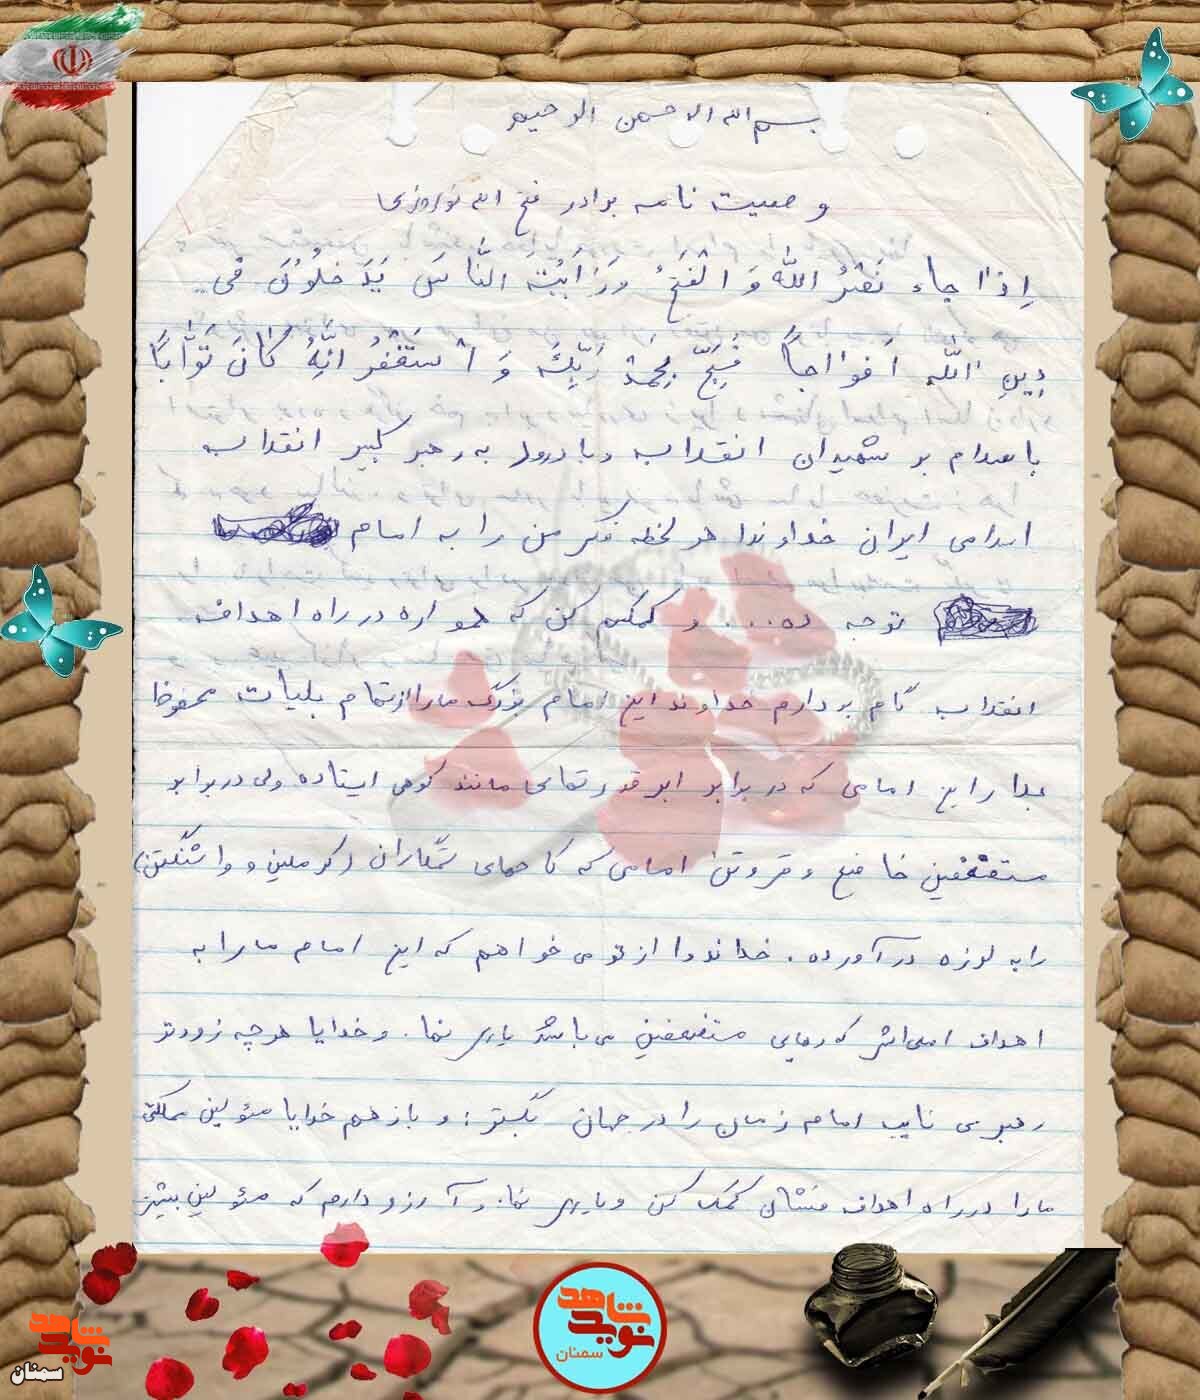 بسم الله الرحمن الرحیم
وصیت نامه برادر فتح الله نوروزی
اِذا جاء نَصْرُ اللهُ وَ الْفَتحُ وَرَاَیْتَ النّاسَ یَدَخلُونَ فی
دِینِ اللّه اَفواجاً فَسَبِّح بِحَمْدِ رَبِّکَ وَ اسْتَغْفِرْهُ اِنَّهُ کانَ تَوّاباً
با سلام بر شهیدان انقلاب و با درود به رهبر کبیر انقلاب
اسلامی ایران خداوندا هر لحظه فکر من را به امام
توجه ده... و کمکم کن که همواره در راه اهداف
انقلاب گام بردارم خداوند این امام بزرگ ما را از تمام بلیات محفوظ
بدار این امامی که در برابر ابرقدرتهای مانند کوهی ایستاده ولی در برابر
مستضعفین خاضع و فروتن امامی که کاخهای ستمگران (کرملین و واشنگتن)
را به لرزه در آورده. خداندوا از تو می خواهم که این امام ما را به
اهداف اصلی‌اش که رهایی مستضعفین می باشد یاری نما. و خدایا هر چه زودتر
رهبری نایب امام زمان را در جهان بگستر: و باز هم خدایا مسئولین مملکتی
ما را در راه اهداف کمک کن و یاری نما. و آرزو دارم که مسئولین بیشتر
شاهد
نوید
سمنان
شاهد
نوید
سمنان